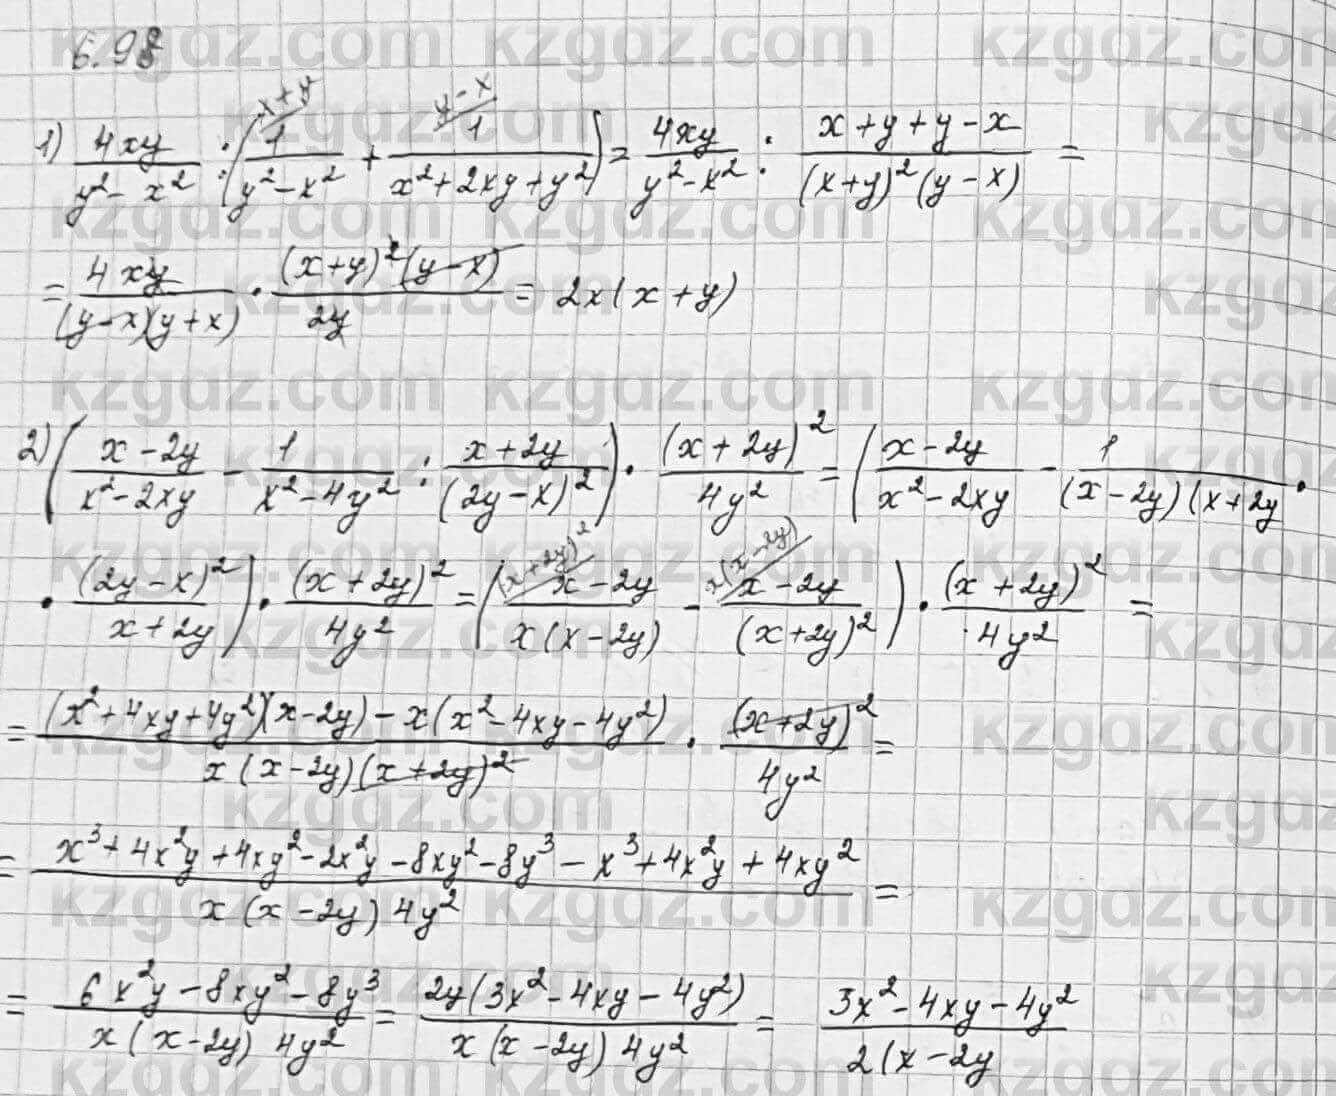 6.98
1) 4xy/(y²-x²) : (1/(y²-x²) + 1/(x²+2xy+y²)) = 4xy/(y²-x²) : (x+y+y-x)/((x+y)²(y-x)) =
= 4xy/((y-x)(y+x)) · (x+y)²(y-x)/2y = 2x(x+y)
2) ((x-2y)/(x²-2xy) - 1/(x²-4y²) : (x+2y)/(2y-x)²) · (x+2y)²/4y² = ((x-2y)/(x²-2xy) - 1/((x-2y)(x+2y ·
· (2y-x)²/(x+2y)) · (x+2y)²/4y² = ((x-2y)/(x(x-2y)) - (x-2y)/(x+2y)²) · (x+2y)²/4y² =
= ((x²+4xy+4y²)(x-2y)-x(x²-4xy-4y²))/(x(x-2y)(x+2y)²) · (x+2y)²/4y² =
= (x³+4x²y+4xy²-2x²y-8xy²-8y³-x³+4x²y+4xy²)/(x(x-2y)4y²) =
= (6x²y-8xy²-8y³)/(x(x-2y)4y²) = 2y(3x²-4xy-4y²)/(x(x-2y)4y²) = (3x²-4xy-4y²)/(2(x-2y
kzgdz.com